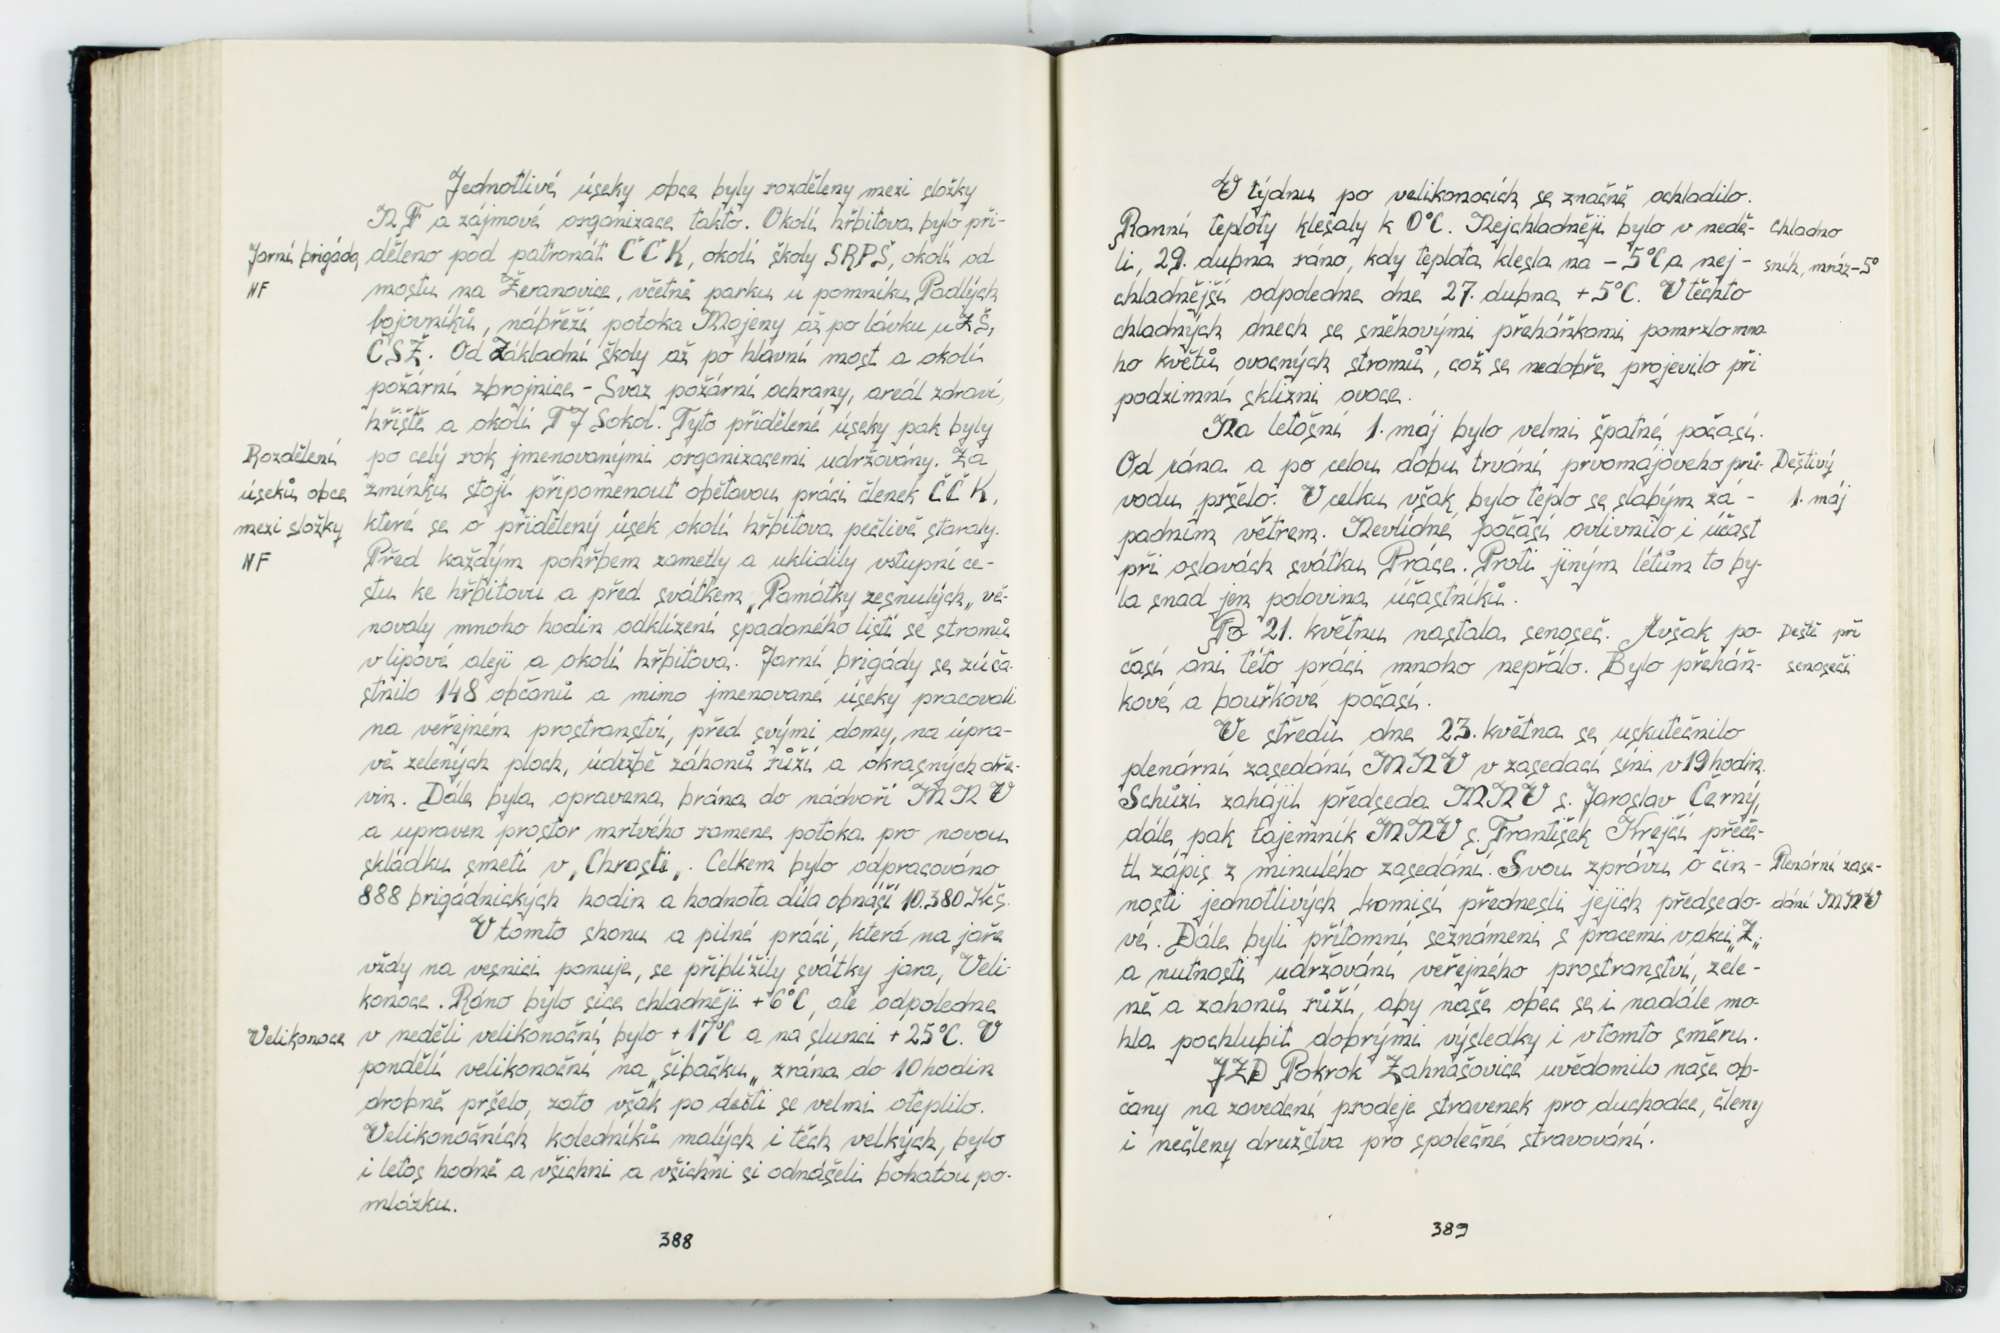 Jednotlivé úseky obce byly rozděleny mezi složky
NF a zájmové organizace takto. Okolí hřbitova bylo při-
Jarní brigáda
NF
děleno pod patronát ČČK, okolí školy SRPŠ, okolí od
mostu na Žeranovice, včetně parku u pomníku Padlých
bojovníků, nábřeží potoka Mojeny až po lávku u ZŠ,
ČSŽ. Od Základní školy až po hlavní most a okolí
požární zbrojnice - Svaz požární ochrany, areál zdraví,
hřiště a okolí TJ Sokol. Tyto přidělené úseky pak byly
Rozdělení
úseků obce
mezi složky
NF
po celý rok jmenovanými organizacemi udržovány. Za
zmínku stojí připomenout obětavou práci členek ČČK,
které se o přidělený úsek okolí hřbitova pečlivě staraly.
Před každým pohřbem zametly a uklidily vstupní ce-
stu ke hřbitovu a před svátkem „Památky zesnulých„ vě-
novaly mnoho hodin odklizení spadaného listí se stromů
v lipové aleji a okolí hřbitova. Jarní brigády se zúča-
stnilo 148 občanů a mimo jmenované úseky pracovali
na veřejném prostranství, před svými domy, na úpra-
vě zelených ploch, údržbě záhonů růží a okrasných dře-
vin. Dále byla opravena brána do nádvoří MNV
a upraven prostor mrtvého ramene potoka pro novou
skládku smetí v „Chrasti„. Celkem bylo odpracováno
888 brigádnických hodin a hodnota díla obnáší 10.380 Kčs.
V tomto shonu a pilné práci, která na jaře
vždy na vesnici panuje, se přiblížily svátky jara, Veli-
konoce. Ráno bylo sice chladněji +6°C, ale odpoledne
Velikonoce
v neděli velikonoční bylo +17°C a na slunci +25°C. V
pondělí velikonoční na „šibačku„ zrána do 10 hodin
drobně pršelo, zato však po dešti se velmi oteplilo.
Velikonočních koledníků malých i těch velkých, bylo
i letos hodně a všichni a všichni si odnášeli bohatou po-
mlázku.
388
V týdnu po velikonocích se značně ochladilo.
Ranní teploty klesaly k 0°C. Nejchladněji bylo v nedě-
li, 29. dubna ráno, kdy teplota klesla na -5°C a nej-
chladnější odpoledne dne 27. dubna +5°C. V těchto
chladných dnech se sněhovými přeháňkami pomrzlo mno-
ho květů ovocných stromů, což se nedobře projevilo při
podzimní sklizni ovoce.
Chladno
sníh, mráz -5°
Na letošní 1. máj bylo velmi špatné počasí.
Od rána a po celou dobu trvání prvomájového prů-
vodu pršelo. V celku však bylo teplo se slabým zá-
padním větrem. Nevlídné počasí ovlivnilo i účast
při oslavách svátku Práce. Proti jiným létům to by-
la snad jen polovina účastníků.
Deštivý
1. máj
Po 21. květnu nastala senoseč. Avšak po-
časí ani této práci mnoho nepřálo. Bylo přeháň-
kové a bouřkové počasí.
Deště při
senoseči
Ve středu dne 23. května se uskutečnilo
plenární zasedání MNV v zasedací síni v 19 hodin.
Schůzi zahájil předseda MNV s. Jaroslav Černý,
dále pak tajemník MNV s. František Krejčí přeče-
tl zápis z minulého zasedání. Svou zprávu o čin-
nosti jednotlivých komisí přednesli jejich předsedo-
vé. Dále byli přítomní seznámeni s pracemi v akci „Z„
a nutnosti udržování veřejného prostranství, zele-
ně a zahonů růží, aby naše obec se i nadále mo-
hla pochlubit dobrými výsledky i v tomto směru.
Plenární zase-
dání MNV
JZD Pokrok Zahnašovice uvědomilo naše ob-
čany na zavedení prodeje stravenek pro duchodce, členy
i nečleny družstva pro společné stravování.
389